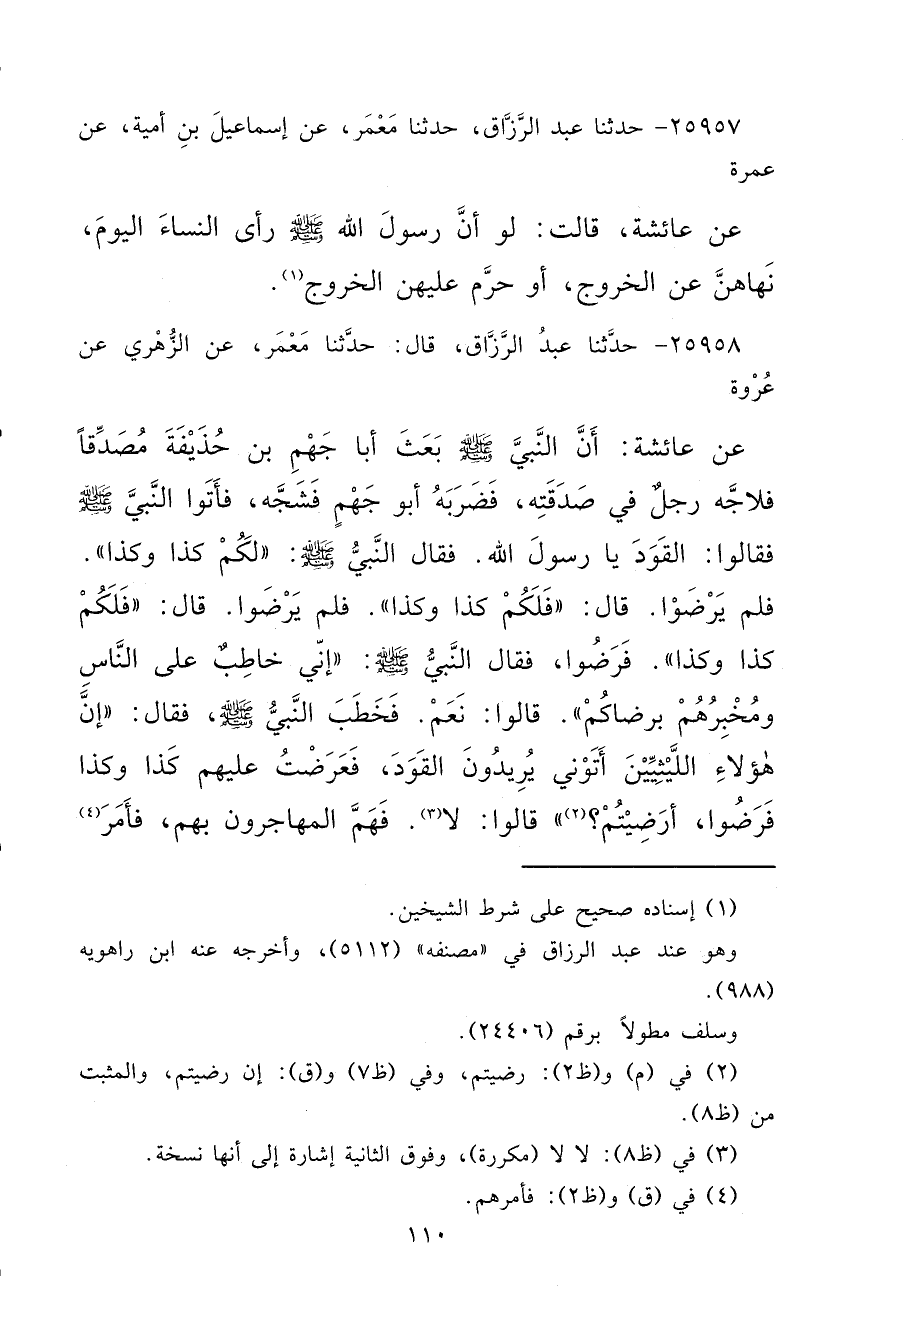 ٢٥٩٥٧- حدثنا عبد الرَّزَّاق، حدثنا مَعْمَر، عن إسماعيلَ بنِ أمية، عن
عمرة
عن عائشة، قالت: لو أنَّ رسولَ الله ﷺ رأى النساءَ اليومَ،
نَهاهنَّ عن الخروج، أو حرَّم عليهن الخروج(١).
٢٥٩٥٨- حدَّثنا عبدُ الرَّزَّاق، قال: حدَّثنا مَعْمَر، عن الزُّهْري عن
عُرْوة
عن عائشة: أَنَّ النَّبيَّ ﷺ بَعَثَ أبا جَهْمِ بن حُذَيْفَةَ مُصَدِّقاً
فلاجَّه رجلٌ في صَدَقَتِه، فَضَرَبَهُ أبو جَهْمٍ فَشَجَّه، فأَتَوا النَّبيَّ ﷺ
فقالوا: القَوَدَ يا رسولَ الله. فقال النَّبيُّ ﷺ: «لكُمْ كذا وكذا».
فلم يَرْضَوْا. قال: «فَلَكُمْ كذا وكذا». فلم يَرْضَوا. قال: «فَلَكُمْ
كذا وكذا». فَرَضُوا، فقال النَّبيُّ ﷺ: «إنّي خاطِبٌ على النَّاسِ
ومُخْبِرُهُمْ برضاكُمْ». قالوا: نَعَمْ. فَخَطَبَ النَّبيُّ ﷺ، فقال: «إنَّ
هٰؤلاءِ اللَّيْثِيِّيْنَ أَتَوْني يُرِيدُونَ القَوَدَ، فَعَرَضْتُ عليهم كَذا وكذا
فَرَضُوا، أرَضِيْتُمْ؟(٢)» قالوا: لا(٣). فَهَمَّ المهاجرون بهم، فأَمَرَ(٤)
(١) إسناده صحيح على شرط الشيخين.
وهو عند عبد الرزاق في «مصنفه» (٥١١٢)، وأخرجه عنه ابن راهويه
(٩٨٨).
وسلف مطولاً برقم (٢٤٤٠٦).
(٢) في (م) و(ظ٢): رضيتم، وفي (ظ٧) و(ق): إن رضيتم، والمثبت
من (ظ٨).
(٣) في (ظ٨): لا لا (مكررة)، وفوق الثانية إشارة إلى أنها نسخة.
(٤) في (ق) و(ظ٢): فأمرهم.
١١٠